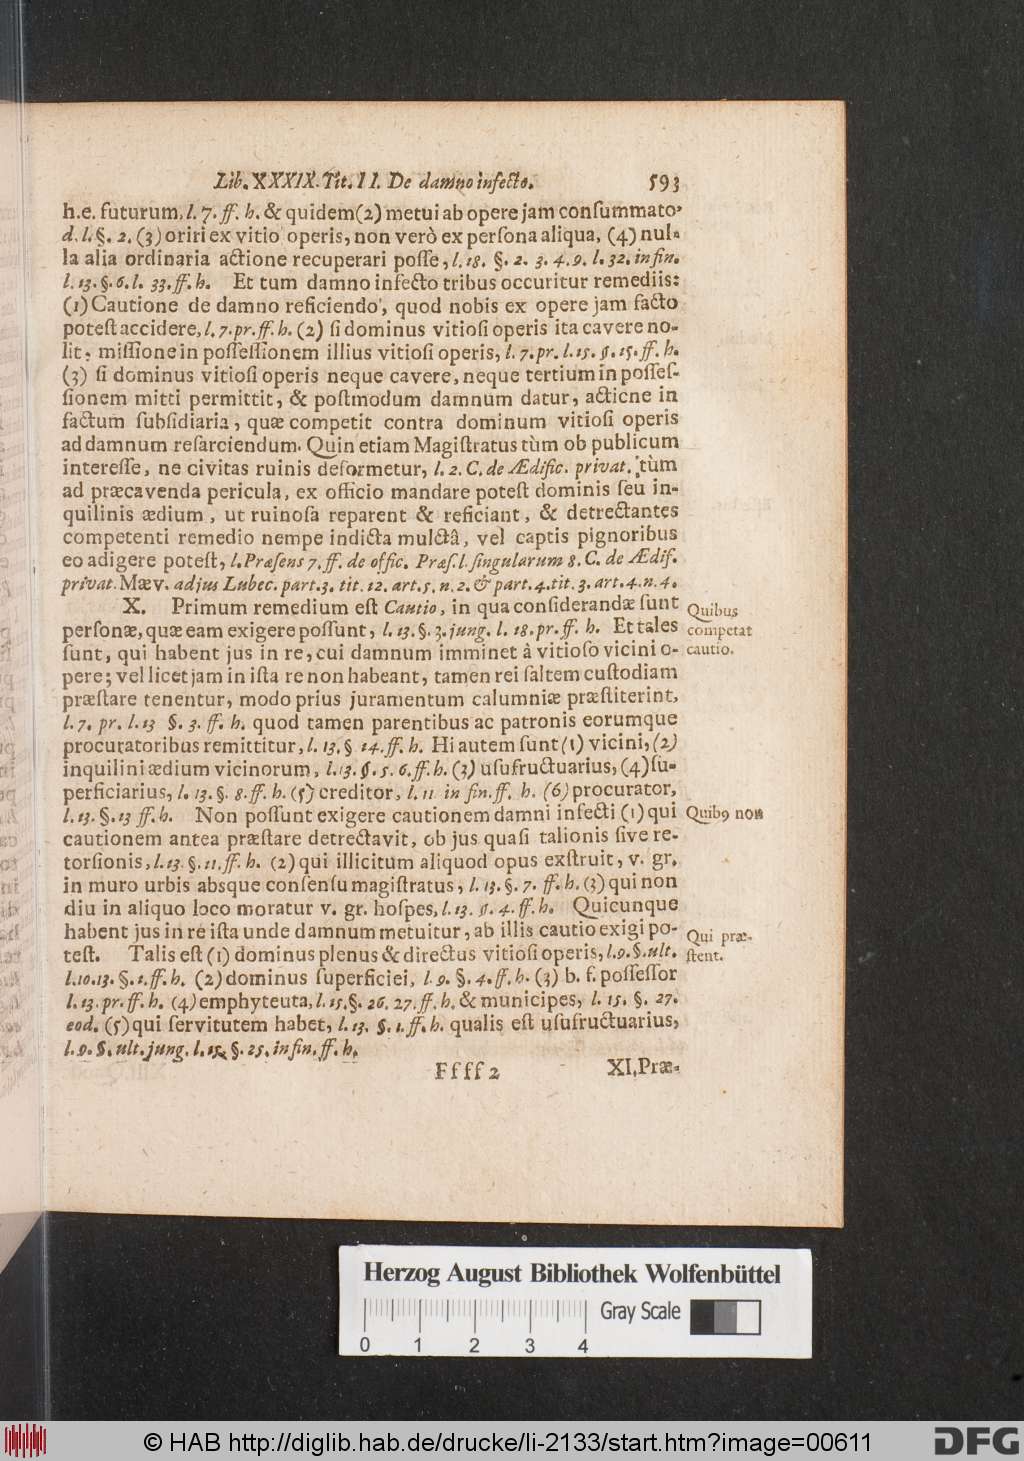 Lib. XXXIX. Tit. II. De damno infecto. 593
h.e. futurum, l. 7. ff. h. & quidem (2) metui ab opere jam consummato,
d. l. §. 2. (3) oriri ex vitio operis, non verò ex persona aliqua, (4) nul-
la alia ordinaria actione recuperari posse, l. 18. §. 2. 3. 4. 9. l. 32. in fin.
l. 13. §. 6. l. 33. ff. h. Et tum damno infecto tribus occuritur remediis:
(1) Cautione de damno reficiendo, quod nobis ex opere jam facto
potest accidere, l. 7. pr. ff. h. (2) si dominus vitiosi operis ita cavere no-
lit, missione in possessionem illius vitiosi operis, l. 7. pr. l. 15. §. 15. ff. h.
(3) si dominus vitiosi operis neque cavere, neque tertium in posses-
sionem mitti permittit, & postmodum damnum datur, acticne in
factum subsidiaria, quæ competit contra dominum vitiosi operis
ad damnum resarciendum. Quin etiam Magistratus tùm ob publicum
interesse, ne civitas ruinis deformetur, l. 2. C. de Ædific. privat. tùm
ad præcavenda pericula, ex officio mandare potest dominis seu in-
quilinis ædium, ut ruinosa reparent & reficiant, & detrectantes
competenti remedio nempe indicta mulctâ, vel captis pignoribus
eo adigere potest, l. Præsens 7. ff. de offic. Præs. l. singularum 8. C. de Ædif.
privat. Mæv. ad jus Lubec. part. 3. tit. 12. art. 5. n. 2. & part. 4. tit. 3. art. 4. n. 4.
X. Primum remedium est Cautio, in qua considerandæ sunt
personæ, quæ eam exigere possunt, l. 13. §. 3. jung. l. 18. pr. ff. h. Et tales
sunt, qui habent jus in re, cui damnum imminet à vitioso vicini o-
pere; vel licet jam in ista re non habeant, tamen rei saltem custodiam
præstare tenentur, modo prius juramentum calumniæ præstiterint,
l. 7. pr. l. 13 §. 3. ff. h. quod tamen parentibus ac patronis eorumque
procuratoribus remittitur, l. 13. § 14. ff. h. Hi autem sunt (1) vicini, (2)
inquilini ædium vicinorum, l. 13. §. 5. 6. ff. h. (3) usufructuarius, (4) su-
perficiarius, l. 13. §. 8. ff. h. (5) creditor, l. 11 in fin. ff. h. (6) procurator,
l. 13. §. 13 ff. h. Non possunt exigere cautionem damni infecti (1) qui
cautionem antea præstare detrectavit, ob jus quasi talionis sive re-
torsionis, l. 13. §. 11. ff. h. (2) qui illicitum aliquod opus exstruit, v. gr.
in muro urbis absque consensu magistratus, l. 13. §. 7. ff. h. (3) qui non
diu in aliquo loco moratur v. gr. hospes, l. 13. §. 4. ff. h. Quicunque
habent jus in re ista unde damnum metuitur, ab illis cautio exigi po-
test. Talis est (1) dominus plenus & directus vitiosi operis, l. 9. §. ult.
l. 10. 13. §. 1. ff. h. (2) dominus superficiei, l. 9. §. 4. ff. h. (3) b. f. possessor
l. 13. pr. ff. h. (4) emphyteuta, l. 15. §. 26. 27. ff. h. & municipes, l. 15. §. 27.
eod. (5) qui servitutem habet, l. 13. §. 1. ff. h. qualis est usufructuarius,
l. 9. §. ult. jung. l. 15. §. 25. in fin. ff. h.
Ffff 2 XI. Præ-
Quibus
competat
cautio.
Quibꝰ non
Qui præ-
stent.
Herzog August Bibliothek Wolfenbüttel
Gray Scale
0 1 2 3 4
© HAB http://diglib.hab.de/drucke/li-2133/start.htm?image=00611
DFG